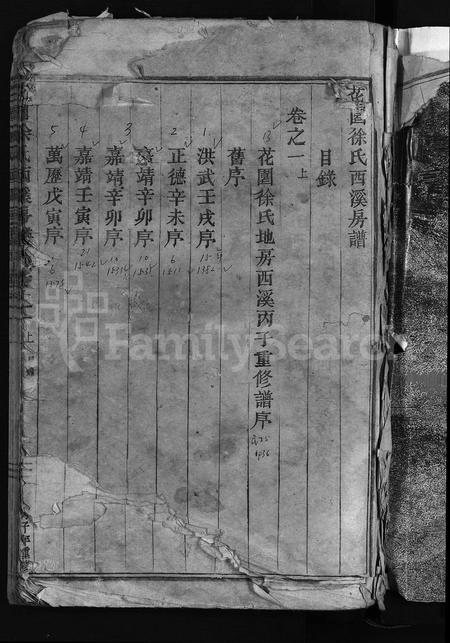 花園徐氏西溪房譜
目錄
卷之一上
花園徐氏地房西溪丙子重修譜序
民25
1936
舊序
1
洪武壬戌序
15
1382
2
正德辛未序
6
1511
3
嘉靖辛卯序
10
嘉靖辛卯序
10
1531
4
嘉靖壬寅序
21
1542
5
萬歷戊寅序
6
FamilySearch